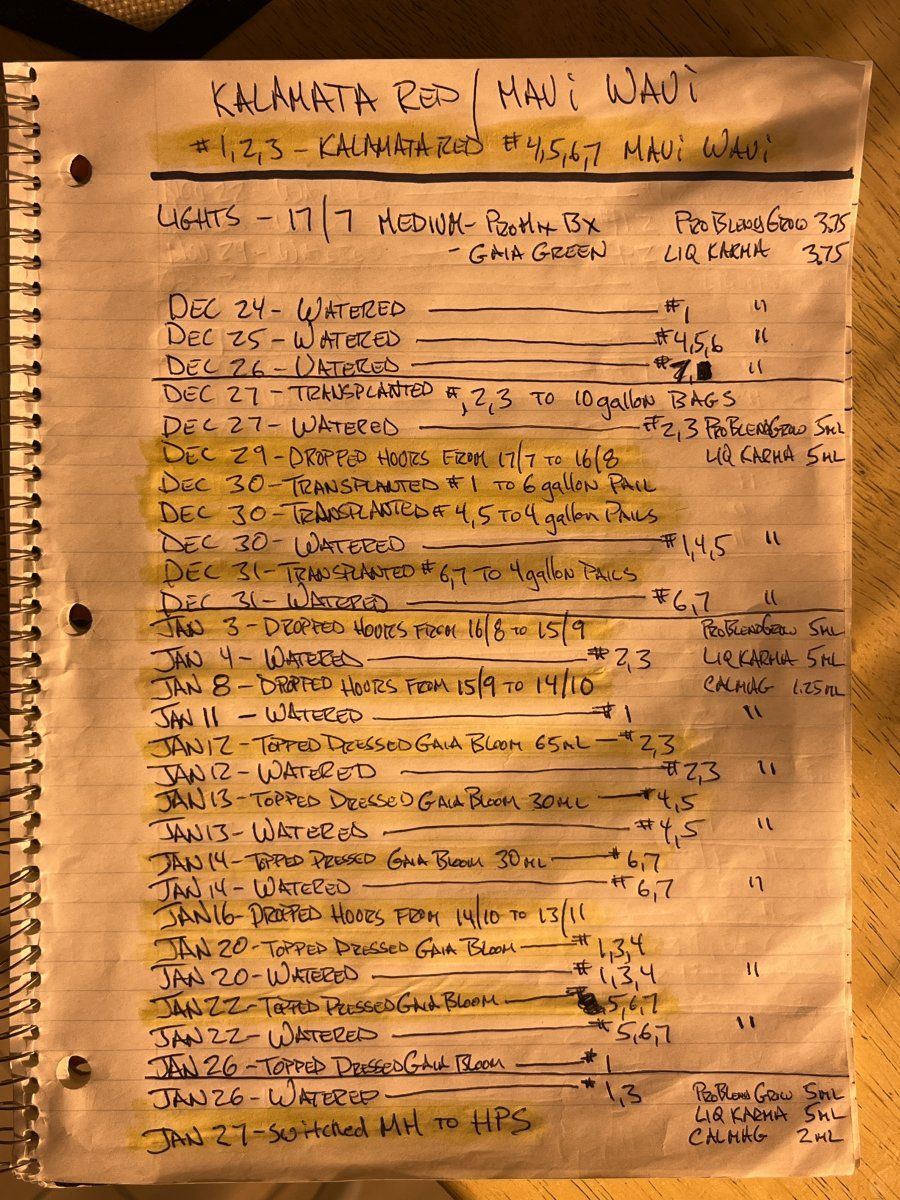 KALAMATA RED / MAUI WAUI
#1,2,3 - KALAMATA RED #4,5,6,7 MAUI WAUI
LIGHTS - 17/7 MEDIUM - PROMIX BX PROBLENDGROW 3.75
- GAIA GREEN LIQ KARMA 3.75
DEC 24 - WATERED #1 "
DEC 25 - WATERED #4,5,6 "
DEC 26 - WATERED #7 "
DEC 27 - TRANSPLANTED #,2,3 TO 10 gallon BAGS
DEC 27 - WATERED #2,3 PROBLENDGROW 5ML
DEC 29 - DROPPED HOURS FROM 17/7 TO 16/8 LIQ KARMA 5ML
DEC 30 - TRANSPLANTED #1 TO 6 gallon PAIL
DEC 30 - TRANSPLANTED # 4,5 TO 4 gallon PAILS
DEC 30 - WATERED #1,4,5 "
DEC 31 - TRANSPLANTED #6,7 TO 4 gallon PAILS
DEC 31 - WATERED #6,7 "
JAN 3 - DROPPED HOURS FROM 16/8 TO 15/9 PROBLENDGROW 5ML
JAN 4 - WATERED #2,3 LIQ KARMA 5ML
JAN 8 - DROPPED HOURS FROM 15/9 TO 14/10 CALMAG 1.25ML
JAN 11 - WATERED #1 "
JAN 12 - TOPPED DRESSED GAIA BLOOM 65ML - #2,3
JAN 12 - WATERED #2,3 "
JAN 13 - TOPPED DRESSED GAIA BLOOM 30ML - #4,5
JAN 13 - WATERED #4,5 "
JAN 14 - TOPPED DRESSED GAIA BLOOM 30ML - #6,7
JAN 14 - WATERED #6,7 "
JAN 16 - DROPPED HOURS FROM 14/10 TO 13/11
JAN 20 - TOPPED DRESSED GAIA BLOOM - #1,3,4
JAN 20 - WATERED #1,3,4 "
JAN 22 - TOPPED DRESSED GAIA BLOOM 5,6,7
JAN 22 - WATERED #5,6,7 "
JAN 26 - TOPPED DRESSED GAIA BLOOM - #1
JAN 26 - WATERED #1,3 PROBLEND GROW 5ML
LIQ KARMA 5ML
JAN 27 - Switched MH TO HPS CALMAG 2ML